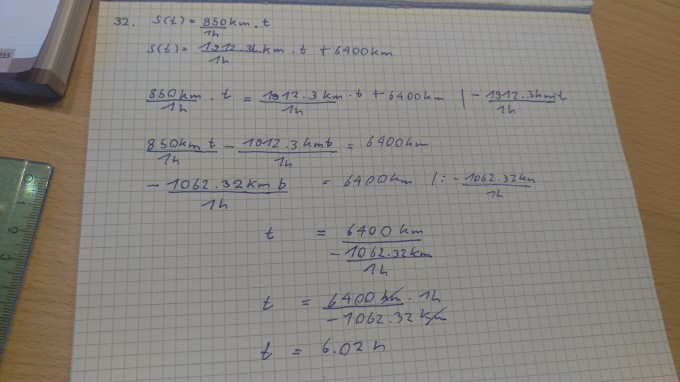 32. S(t) = 850km/1h · t
S(t) = 1912.3km/1h · t + 6400km
850km/1h · t = 1912.3km/1h · t + 6400km | - 1912.3km t/1h
850km t/1h - 1912.3km t/1h = 6400km
- 1062.32km t/1h = 6400km | : - 1062.32km/1h
t = 6400km/- 1062.32km/1h
t = 6400km · 1h/- 1062.32km
t = 6.02h